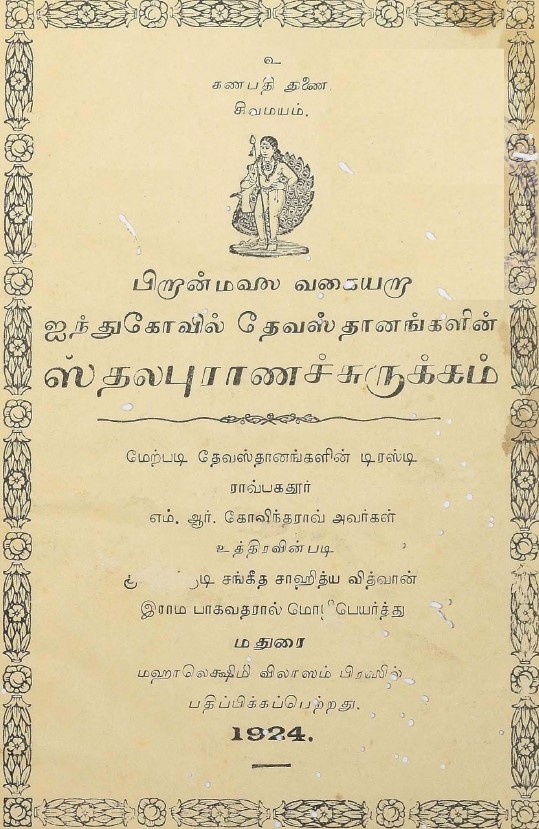 உ
கணபதி துணை
சிவமயம்.
பிறான்மலை வகையறா
ஐந்துகோவில் தேவஸ்தானங்களின்
ஸ்தலபுராணச்சுருக்கம்
மேற்படி தேவஸ்தானங்களின் டிரஸ்டி
ராவ்பகதூர்
எம். ஆர். கோவிந்தராவ் அவர்கள்
உத்திரவின்படி
சங்கீத சாஹித்ய வித்வான்
இராம பாகவதரால்
மதுரை
மஹாலெக்ஷிமி விலாஸம் பிரஸில்
பதிப்பிக்கப்பெற்றது.
1924.